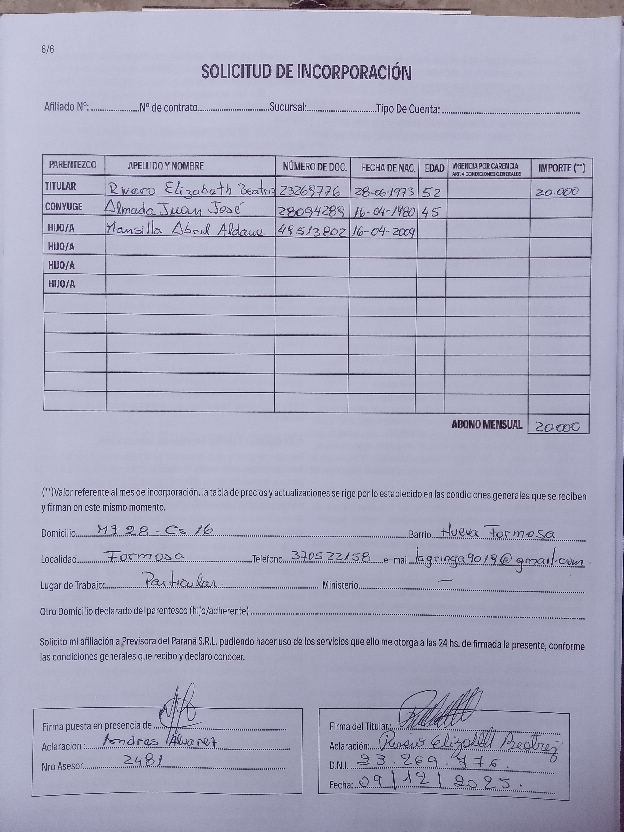 6/6
SOLICITUD DE INCORPORACIÓN
Afiliado Nº: Nº de contrato Sucursal: Tipo De Cuenta:
PARENTEZCO APELLIDO Y NOMBRE NÚMERO DE DOC. FECHA DE NAC. EDAD IMPORTE (**)
TITULAR Rivero Elizabeth Beatriz 23269776 28-06-1973 52 20.000
CONYUGE Almada Juan José 28094289 16-04-1980 45
HIJO/A Mansilla Abril 49513802 16-04-2009
HIJO/A
HIJO/A
HIJO/A
ABONO MENSUAL 20.000
(**)Valor referente al mes de incorporación. La tabla de precios y actualizaciones se rige por lo establecido en las condiciones generales que se reciben
y firman en este mismo momento.
Domicilio Mz 28 - Cs 16 Barrio Nueva Formosa
Localidad Formosa Teléfono e-mail
Lugar de Trabajo: Particular Ministerio —
Otro Domicilio declarado del parentesco (hijo/adherente)
Solicito mi afiliación a Previsora del Paraná S.R.L. pudiendo hacer uso de los servicios que ello me otorga a las 24 hs. de firmada la presente, conforme
las condiciones generales que recibo y declaro conocer.
Firma puesta en presencia de
Aclaración: Andres Alvarez
Nro Asesor: 2481
Firma del Titular:
Aclaración: Elizabeth Beatriz
D.N.I. 23.269.776.
Fecha: 09/12/2025.